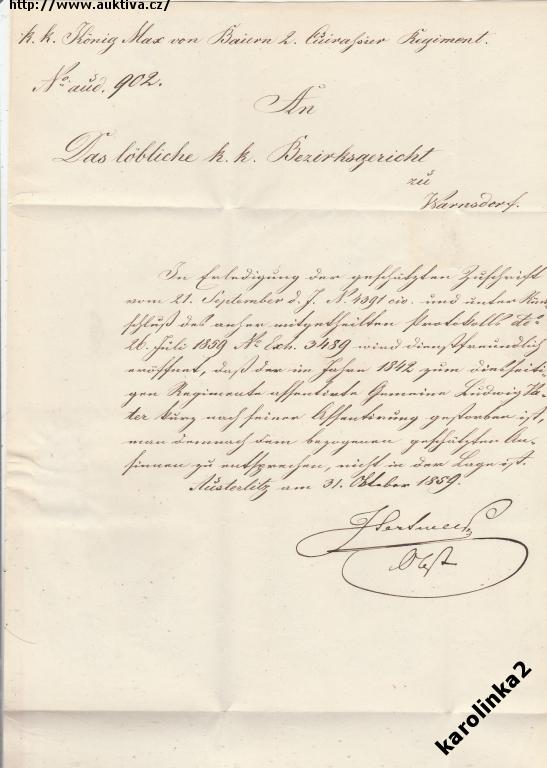 http://www.auktiva.cz/
k. k. König Max von Baiern 2. Cuirassier Regiment.
No. aud. 902.
An
Das löbliche k. k. Bezirksgericht
zu
Warnsdorf.
In Erledigung der geschätzten Zuschrift
vom 21. September d. J. N. 4391 civ. und unter
schluß des anher mitgetheilten Protokolls dto
26. Juli 1859 No. Exh. 3489 wird dienstfreundlich
eröffnet, daß der im Jahre 1842 zum diesseiti-
gen Regimente assentirte Gemeine Ludwig
kurz nach seiner Assentirung gestorben ist,
man demnach dem bezogenen geschätzten An-
sinnen zu entsprechen, nicht in der Lage ist.
Austerlitz am 31. Oktober 1859.
Obst
karolinka2